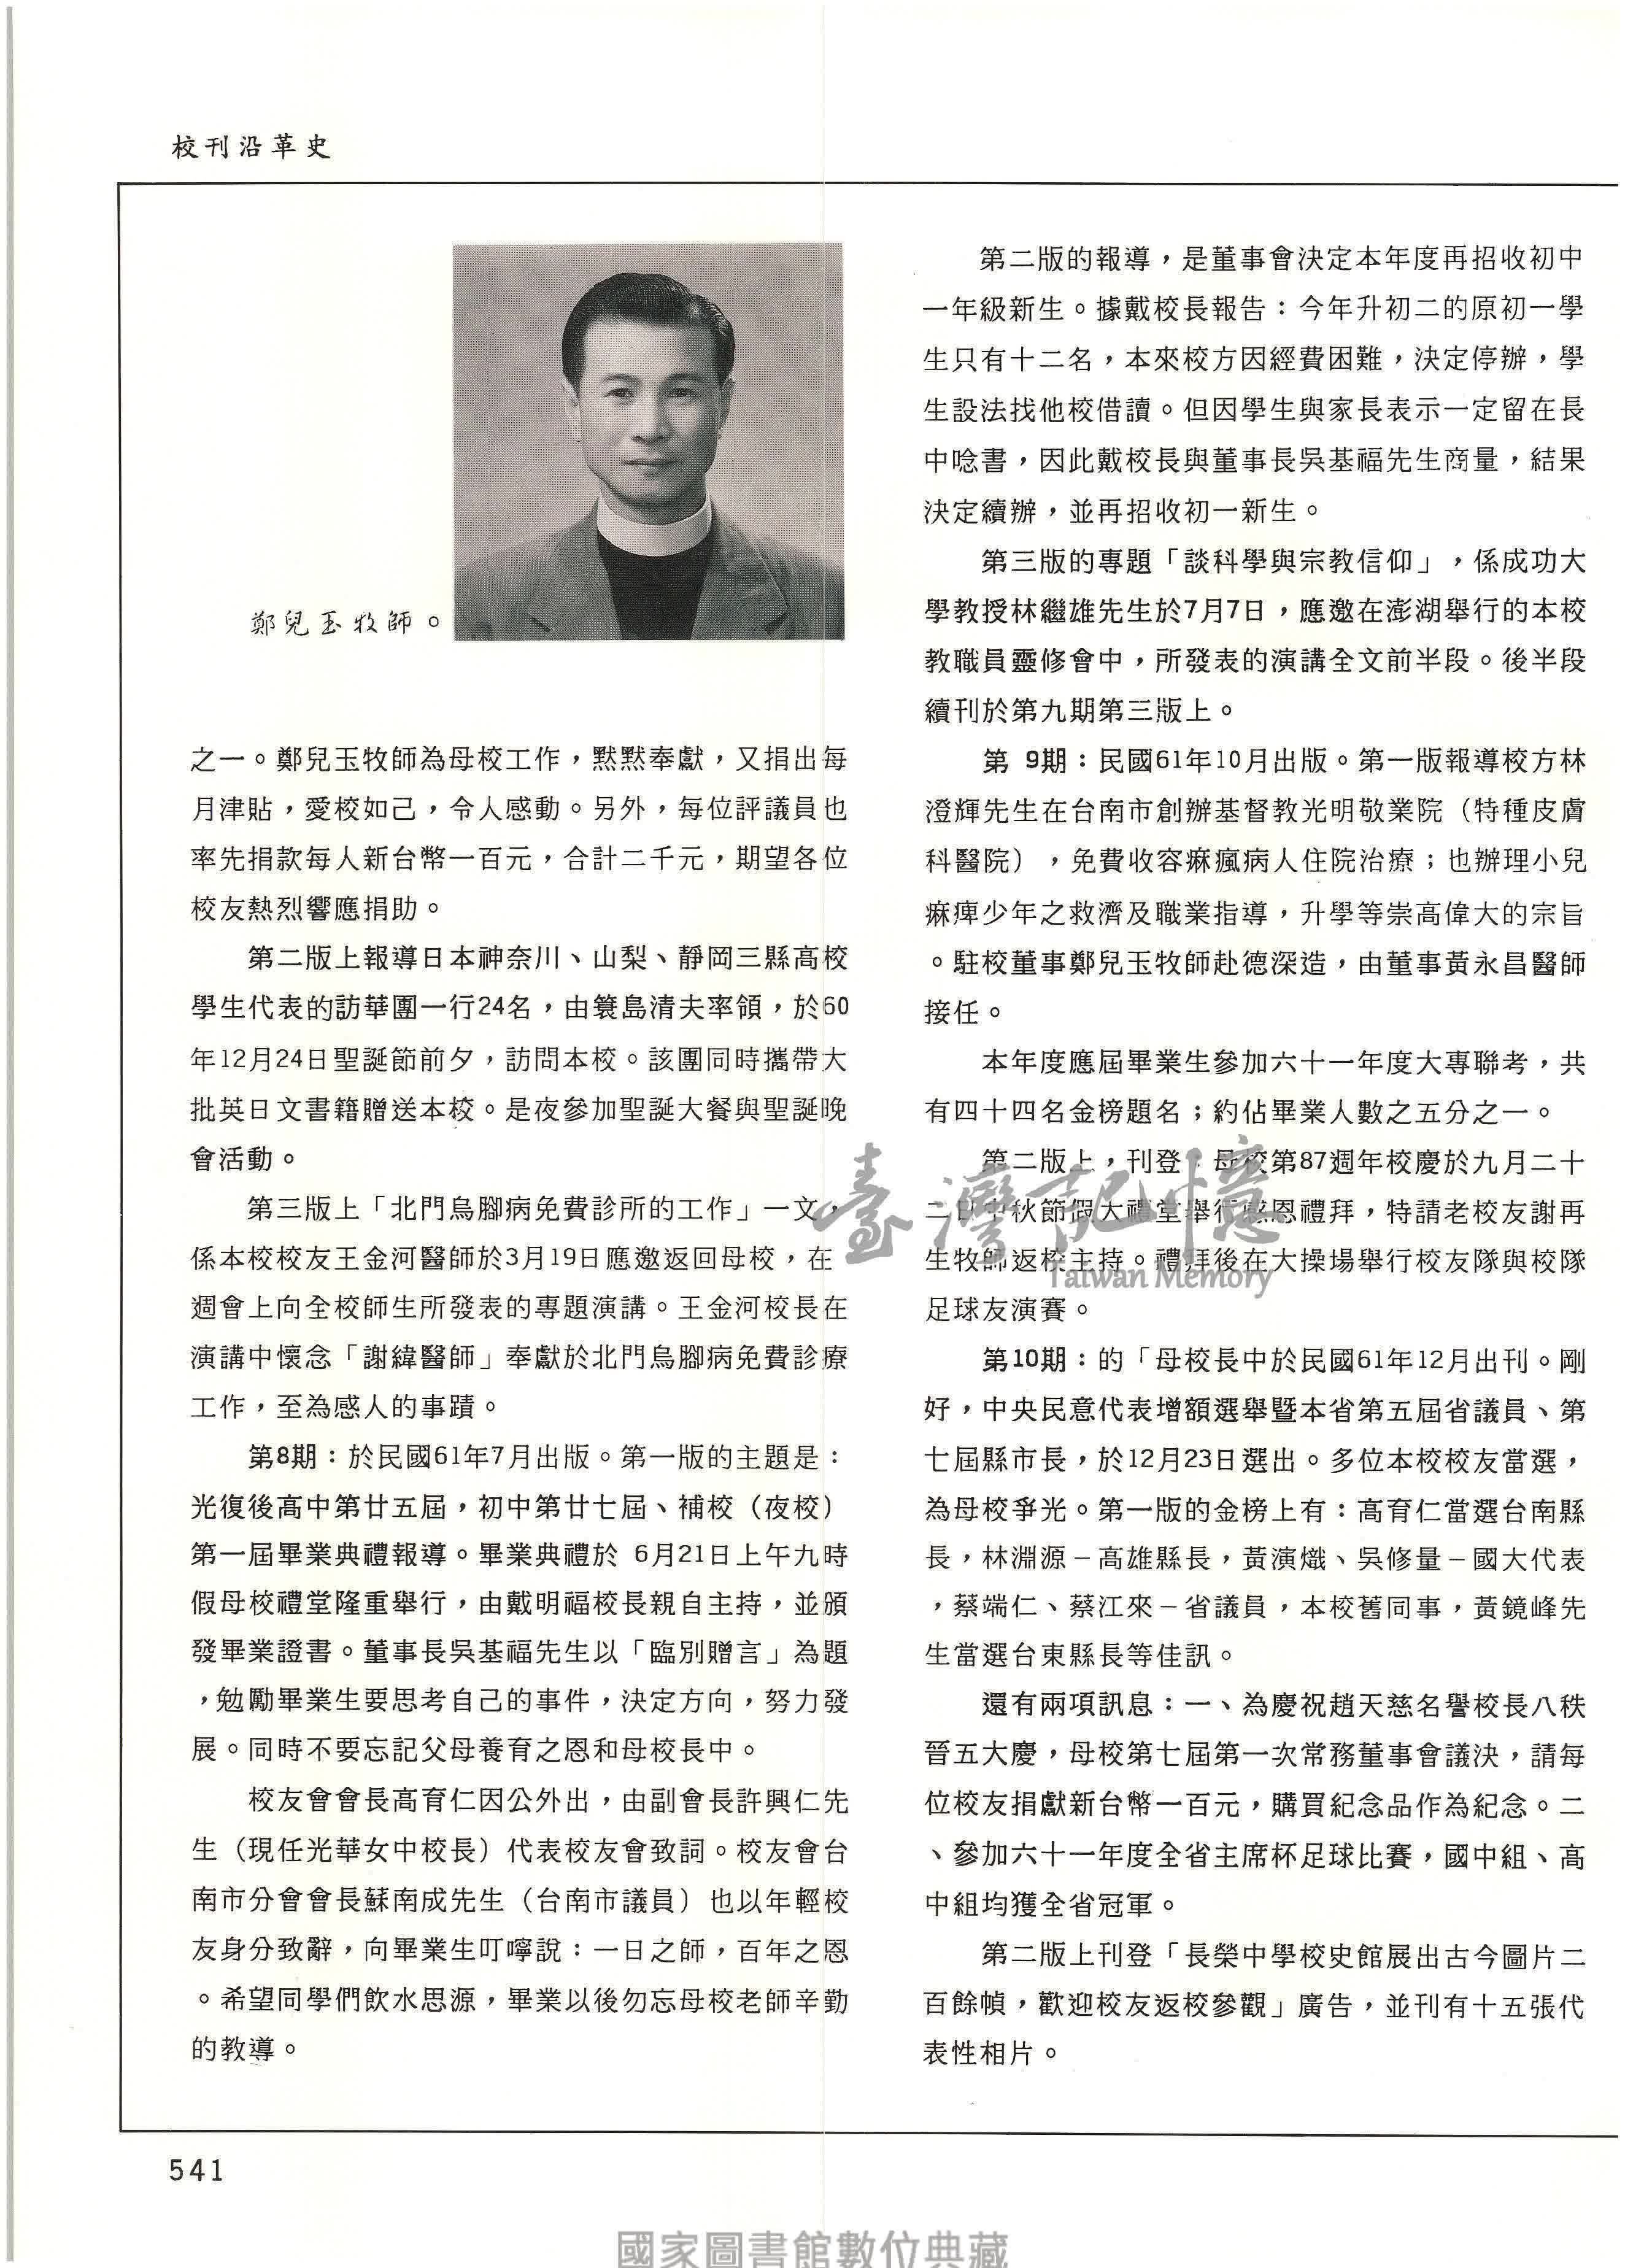 校刊沿革史
鄭兒玉牧師。
之一。鄭兒玉牧師為母校工作，黙黙奉獻，又捐出每
月津貼，愛校如己，令人感動。另外，每位評議員也
率先捐款每人新台幣一百元，合計二千元，期望各位
校友熱烈響應捐助。
第二版上報導日本神奈川、山梨、靜岡三縣高校
學生代表的訪華團一行24名，由簑島清夫率領，於60
年12月24日聖誕節前夕，訪問本校。該團同時攜帶大
批英日文書籍贈送本校。是夜參加聖誕大餐與聖誕晚
會活動。
第三版上「北門烏腳病免費診所的工作」一文，
係本校校友王金河醫師於3月19日應邀返回母校，在
週會上向全校師生所發表的專題演講。王金河校長在
演講中懷念「謝緯醫師」奉獻於北門烏腳病免費診療
工作，至為感人的事蹟。
第8期：於民國61年7月出版。第一版的主題是：
光復後高中第廿五屆，初中第廿七屆、補校（夜校）
第一屆畢業典禮報導。畢業典禮於 6月21日上午九時
假母校禮堂隆重舉行，由戴明福校長親自主持，並頒
發畢業證書。董事長吳基福先生以「臨別贈言」為題
，勉勵畢業生要思考自己的事件，決定方向，努力發
展。同時不要忘記父母養育之恩和母校長中。
校友會會長高育仁因公外出，由副會長許興仁先
生（現任光華女中校長）代表校友會致詞。校友會台
南市分會會長蘇南成先生（台南市議員）也以年輕校
友身分致辭，向畢業生叮嚀說：一日之師，百年之恩
。希望同學們飲水思源，畢業以後勿忘母校老師辛勤
的教導。
第二版的報導，是董事會決定本年度再招收初中
一年級新生。據戴校長報告：今年升初二的原初一學
生只有十二名，本來校方因經費困難，決定停辦，學
生設法找他校借讀。但因學生與家長表示一定留在長
中唸書，因此戴校長與董事長吳基福先生商量，結果
決定續辦，並再招收初一新生。
第三版的專題「談科學與宗教信仰」，係成功大
學教授林繼雄先生於7月7日，應邀在澎湖舉行的本校
教職員靈修會中，所發表的演講全文前半段。後半段
續刊於第九期第三版上。
第 9期：民國61年10月出版。第一版報導校方林
澄輝先生在台南市創辦基督教光明敬業院（特種皮膚
科醫院），免費收容痳瘋病人住院治療；也辦理小兒
痳痺少年之救濟及職業指導，升學等崇高偉大的宗旨
。駐校董事鄭兒玉牧師赴德深造，由董事黃永昌醫師
接任。
本年度應屆畢業生參加六十一年度大專聯考，共
有四十四名金榜題名；約佔畢業人數之五分之一。
第二版上，刊登：母校第87週年校慶於九月二十
二日中秋節假大禮堂舉行感恩禮拜，特請老校友謝再
生牧師返校主持。禮拜後在大操場舉行校友隊與校隊
足球友演賽。
第10期：的「母校長中於民國61年12月出刊。剛
好，中央民意代表增額選舉暨本省第五屆省議員、第
七屆縣市長，於12月23日選出。多位本校校友當選，
為母校爭光。第一版的金榜上有：高育仁當選台南縣
長，林淵源－高雄縣長，黃演熾、吳修量－國大代表
，蔡端仁、蔡江來－省議員，本校舊同事，黃鏡峰先
生當選台東縣長等佳訊。
還有兩項訊息：一、為慶祝趙天慈名譽校長八秩
晉五大慶，母校第七屆第一次常務董事會議決，請每
位校友捐獻新台幣一百元，購買紀念品作為紀念。二
、參加六十一年度全省主席杯足球比賽，國中組、高
中組均獲全省冠軍。
第二版上刊登「長榮中學校史館展出古今圖片二
百餘幀，歡迎校友返校參觀」廣告，並刊有十五張代
表性相片。
臺灣記憶
Taiwan Memory
541
國家圖書館數位典藏